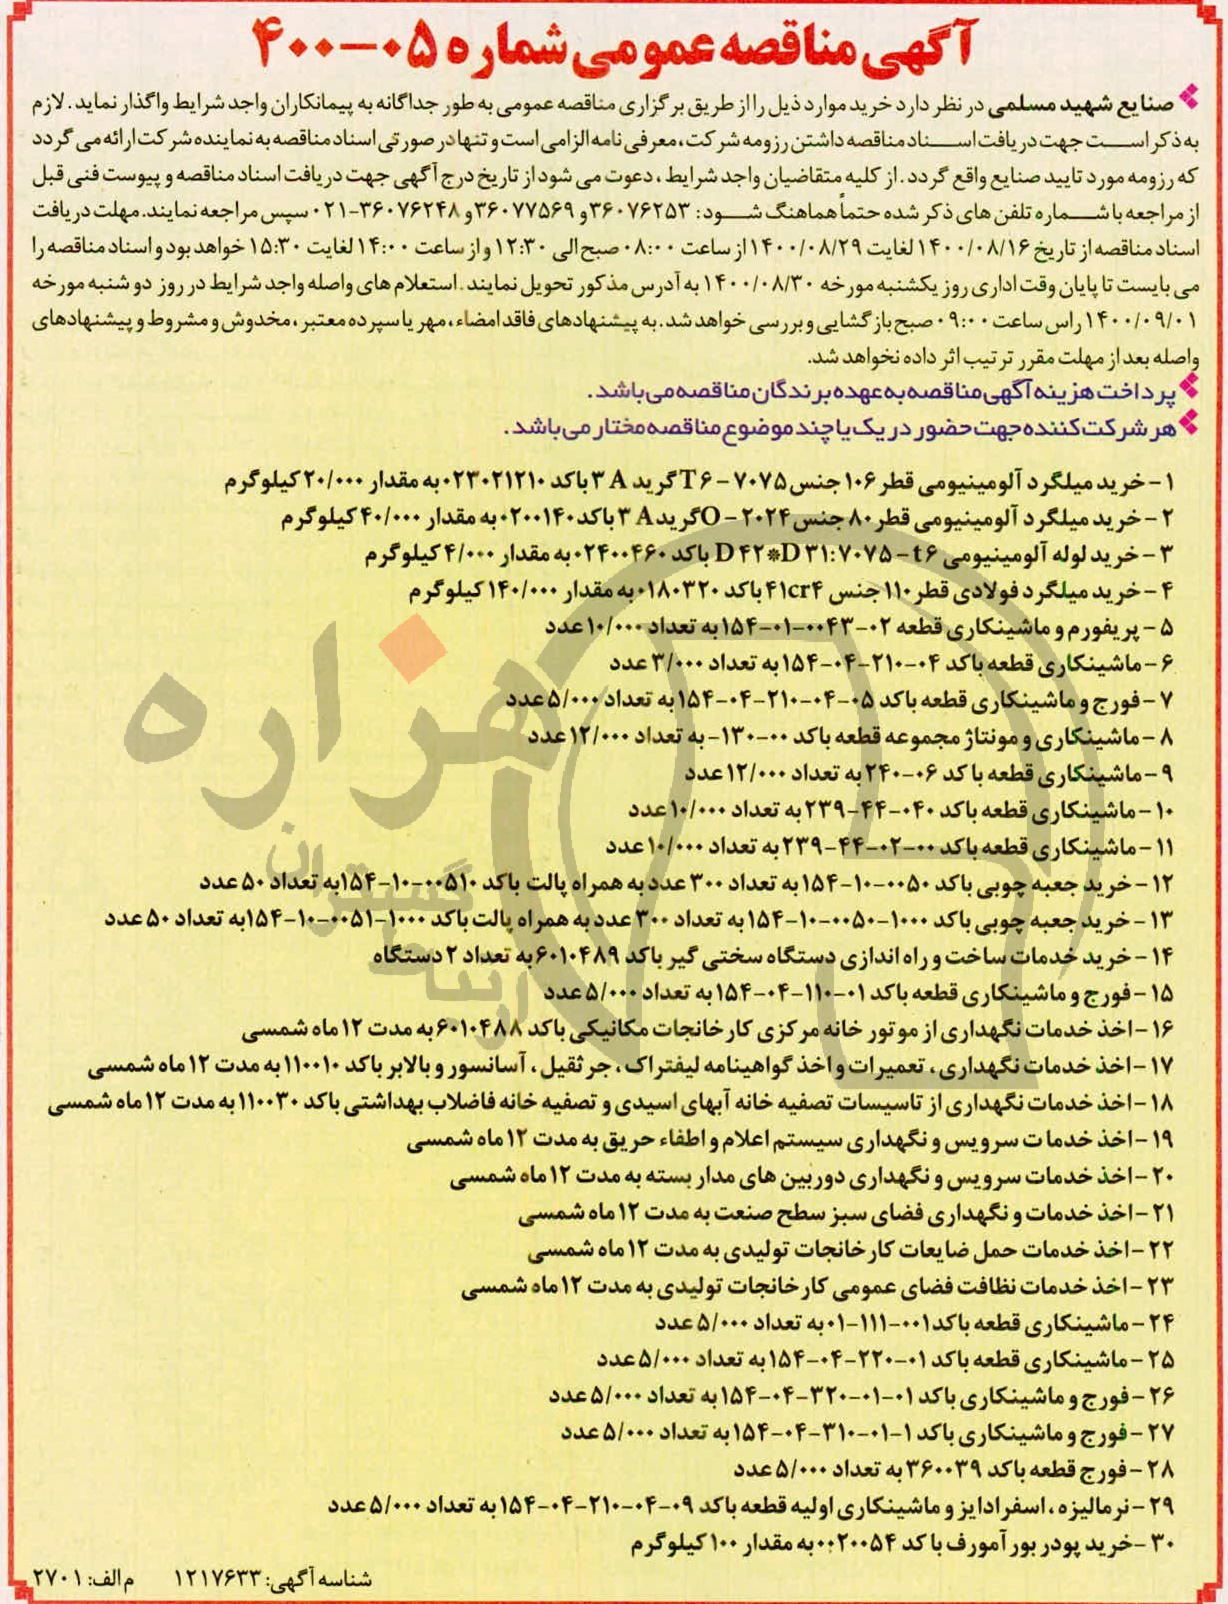 آگهی مناقصه عمومی شماره ۰۵-۴۰۰
صنایع شهید مسلمی در نظر دارد خرید موارد ذیل را از طریق برگزاری مناقصه عمومی به طور جداگانه به پیمانکاران واجد شرایط واگذار نماید. لازم
به ذکر است جهت دریافت اسناد مناقصه داشتن رزومه شرکت، معرفی نامه الزامی است و تنها در صورتی اسناد مناقصه به نماینده شرکت ارائه می گردد
که رزومه مورد تایید صنایع واقع گردد. از کلیه متقاضیان واجد شرایط، دعوت می شود از تاریخ درج آگهی جهت دریافت اسناد مناقصه و پیوست فنی قبل
از مراجعه با شماره تلفن های ذکر شده حتماً هماهنگ شود: ۳۶۰۷۶۲۵۳ و ۳۶۰۷۷۵۶۹ و ۳۶۰۷۶۲۴۸-۰۲۱ سپس مراجعه نمایند. مهلت دریافت
اسناد مناقصه از تاریخ ۱۴۰۰/۰۸/۱۶ لغایت ۱۴۰۰/۰۸/۲۹ از ساعت ۰۸:۰۰ صبح الی ۱۲:۳۰ و از ساعت ۱۴:۰۰ لغایت ۱۵:۳۰ خواهد بود و اسناد مناقصه را
می بایست تا پایان وقت اداری روز یکشنبه مورخه ۱۴۰۰/۰۸/۳۰ به آدرس مذکور تحویل نمایند. استعلام های واصله واجد شرایط در روز دو شنبه مورخه
۱۴۰۰/۰۹/۰۱ راس ساعت ۰۹:۰۰ صبح بازگشایی و بررسی خواهد شد. به پیشنهادهای فاقد امضاء، مهر یا سپرده معتبر، مخدوش و مشروط و پیشنهادهای
واصله بعد از مهلت مقرر ترتیب اثر داده نخواهد شد.
پرداخت هزینه آگهی مناقصه به عهده برندگان مناقصه می باشد.
هر شرکت کننده جهت حضور در یک یا چند موضوع مناقصه مختار می باشد.
۱- خرید میلگرد آلومینیومی قطر ۱۰۶ جنس ۷۰۷۵ - T۶ گرید A ۳ با کد ۰۲۳۰۲۱۲۱۰ به مقدار ۲۰/۰۰۰ کیلوگرم
۲- خرید میلگرد آلومینیومی قطر ۸۰ جنس ۲۰۲۴ - O گرید A ۳ با کد ۰۲۰۰۱۴۰ به مقدار ۴۰/۰۰۰ کیلوگرم
۳- خرید لوله آلومینیومی D۴۲*D۳۱:۷۰۷۵-t۶ با کد ۰۲۴۰۰۴۶۰ به مقدار ۴/۰۰۰ کیلوگرم
۴- خرید میلگرد فولادی قطر ۱۱۰ جنس ۴۱cr۴ با کد ۰۱۸۰۳۲۰ به مقدار ۱۴۰/۰۰۰ کیلوگرم
۵- پریفورم و ماشینکاری قطعه ۰۲-۰۰۴۳-۰۱-۱۵۴ به تعداد ۱۰/۰۰۰ عدد
۶- ماشینکاری قطعه باکد ۰۴-۲۱۰-۰۴-۱۵۴ به تعداد ۳/۰۰۰ عدد
۷- فورج و ماشینکاری قطعه باکد ۰۵-۰۴-۲۱۰-۰۴-۱۵۴ به تعداد ۵/۰۰۰ عدد
۸- ماشینکاری و مونتاژ مجموعه قطعه باکد ۰۰-۱۳۰- به تعداد ۱۲/۰۰۰ عدد
۹- ماشینکاری قطعه با کد ۰۶-۲۴۰ به تعداد ۱۲/۰۰۰ عدد
۱۰- ماشینکاری قطعه باکد ۰۴۰-۴۴-۲۳۹ به تعداد ۱۰/۰۰۰ عدد
۱۱- ماشینکاری قطعه باکد ۰۰-۰۲-۴۴-۲۳۹ به تعداد ۱۰/۰۰۰ عدد
۱۲- خرید جعبه چوبی باکد ۰۰۵۰-۱۰-۱۵۴ به تعداد ۳۰۰ عدد به همراه پالت باکد ۰۰۵۱۰-۱۰-۱۵۴ به تعداد ۵۰ عدد
۱۳- خرید جعبه چوبی باکد ۱۰۰۰-۰۰۵۰-۱۰-۱۵۴ به تعداد ۳۰۰ عدد به همراه پالت باکد ۱۰۰۰-۰۰۵۱-۱۰-۱۵۴ به تعداد ۵۰ عدد
۱۴- خرید خدمات ساخت و راه اندازی دستگاه سختی گیر باکد ۶۰۱۰۴۸۹ به تعداد ۲ دستگاه
۱۵- فورج و ماشینکاری قطعه باکد ۰۱-۱۱۰-۰۴-۱۵۴ به تعداد ۵/۰۰۰ عدد
۱۶- اخذ خدمات نگهداری از موتور خانه مرکزی کارخانجات مکانیکی باکد ۶۰۱۰۴۸۸ به مدت ۱۲ ماه شمسی
۱۷- اخذ خدمات نگهداری، تعمیرات و اخذ گواهینامه لیفتراک، جرثقیل، آسانسور و بالابر باکد ۱۱۰۰۱۰ به مدت ۱۲ ماه شمسی
۱۸- اخذ خدمات نگهداری از تاسیسات تصفیه خانه آبهای اسیدی و تصفیه خانه فاضلاب بهداشتی باکد ۱۱۰۰۳۰ به مدت ۱۲ ماه شمسی
۱۹- اخذ خدمات سرویس و نگهداری سیستم اعلام و اطفاء حریق به مدت ۱۲ ماه شمسی
۲۰- اخذ خدمات سرویس و نگهداری دوربین های مدار بسته به مدت ۱۲ ماه شمسی
۲۱- اخذ خدمات و نگهداری فضای سبز سطح صنعت به مدت ۱۲ ماه شمسی
۲۲- اخذ خدمات حمل ضایعات کارخانجات تولیدی به مدت ۱۲ ماه شمسی
۲۳- اخذ خدمات نظافت فضای عمومی کارخانجات تولیدی به مدت ۱۲ ماه شمسی
۲۴- ماشینکاری قطعه باکد ۰۰۱-۱۱۱-۰۱ به تعداد ۵/۰۰۰ عدد
۲۵- ماشینکاری قطعه باکد ۰۱-۲۲۰-۰۴-۱۵۴ به تعداد ۵/۰۰۰ عدد
۲۶- فورج و ماشینکاری باکد ۰۱-۰۱-۳۲۰-۰۴-۱۵۴ به تعداد ۵/۰۰۰ عدد
۲۷- فورج و ماشینکاری باکد ۱-۰۱-۳۱۰-۰۴-۱۵۴ به تعداد ۵/۰۰۰ عدد
۲۸- فورج قطعه باکد ۳۶۰۰۳۹ به تعداد ۵/۰۰۰ عدد
۲۹- نرمالیزه، اسفرادایز و ماشینکاری اولیه قطعه باکد ۰۹-۰۴-۲۱۰-۰۴-۱۵۴ به تعداد ۵/۰۰۰ عدد
۳۰- خرید پودر بور آمورف با کد ۰۰۲۰۰۵۴ به مقدار ۱۰۰ کیلوگرم
شناسه آگهی: ۱۲۱۷۶۳۳ م الف: ۲۷۰۱
هزاره